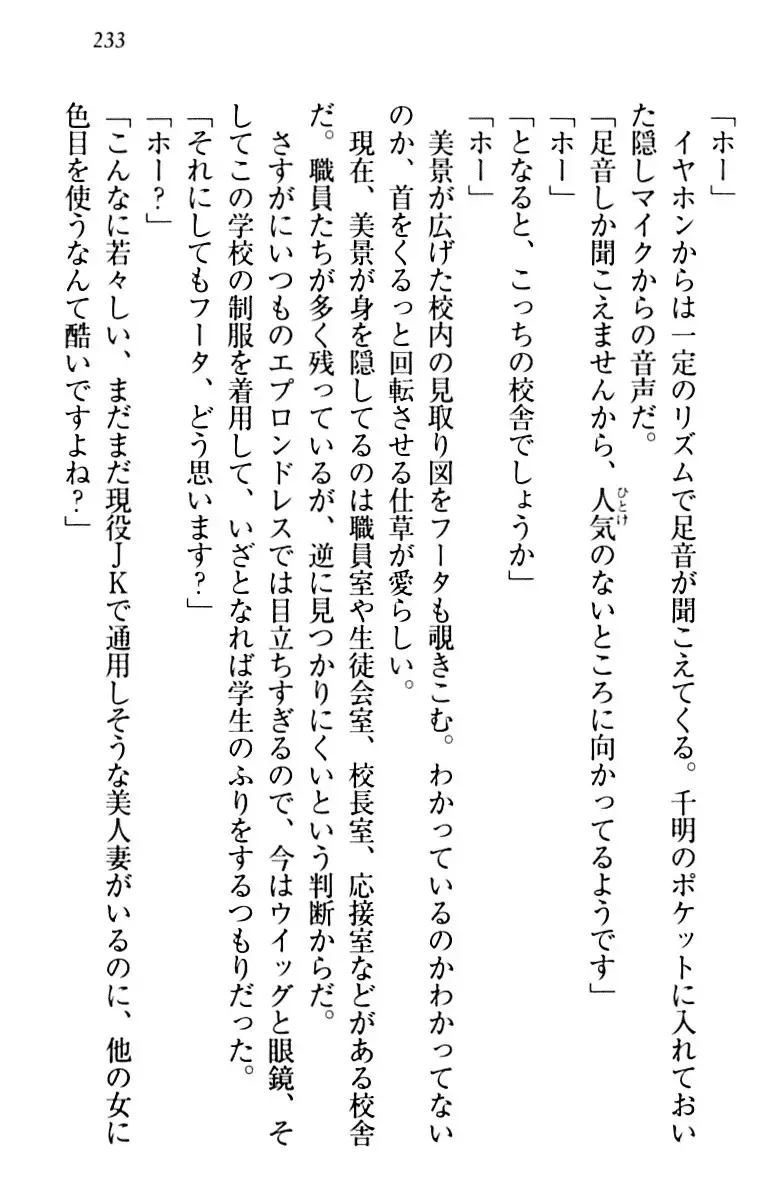 233
「ホー」
　イヤホンからは一定のリズムで足音が聞こえてくる。千明のポケットに入れておい
た隠しマイクからの音声だ。
「足音しか聞こえませんから、人気のないところに向かってるようです」
ひとけ
「ホー」
「となると、こっちの校舎でしょうか」
「ホー」
　美景が広げた校内の見取り図をフータも覗きこむ。わかっているのかわかってない
のか、首をくるっと回転させる仕草が愛らしい。
　現在、美景が身を隠してるのは職員室や生徒会室、校長室、応接室などがある校舎
だ。職員たちが多く残っているが、逆に見つかりにくいという判断からだ。
　さすがにいつものエプロンドレスでは目立ちすぎるので、今はウイッグと眼鏡、そ
してこの学校の制服を着用して、いざとなれば学生のふりをするつもりだった。
「それにしてもフータ、どう思います？」
「ホー？」
「こんなに若々しい、まだまだ現役ＪＫで通用しそうな美人妻がいるのに、他の女に
色目を使うなんて酷いですよね？」